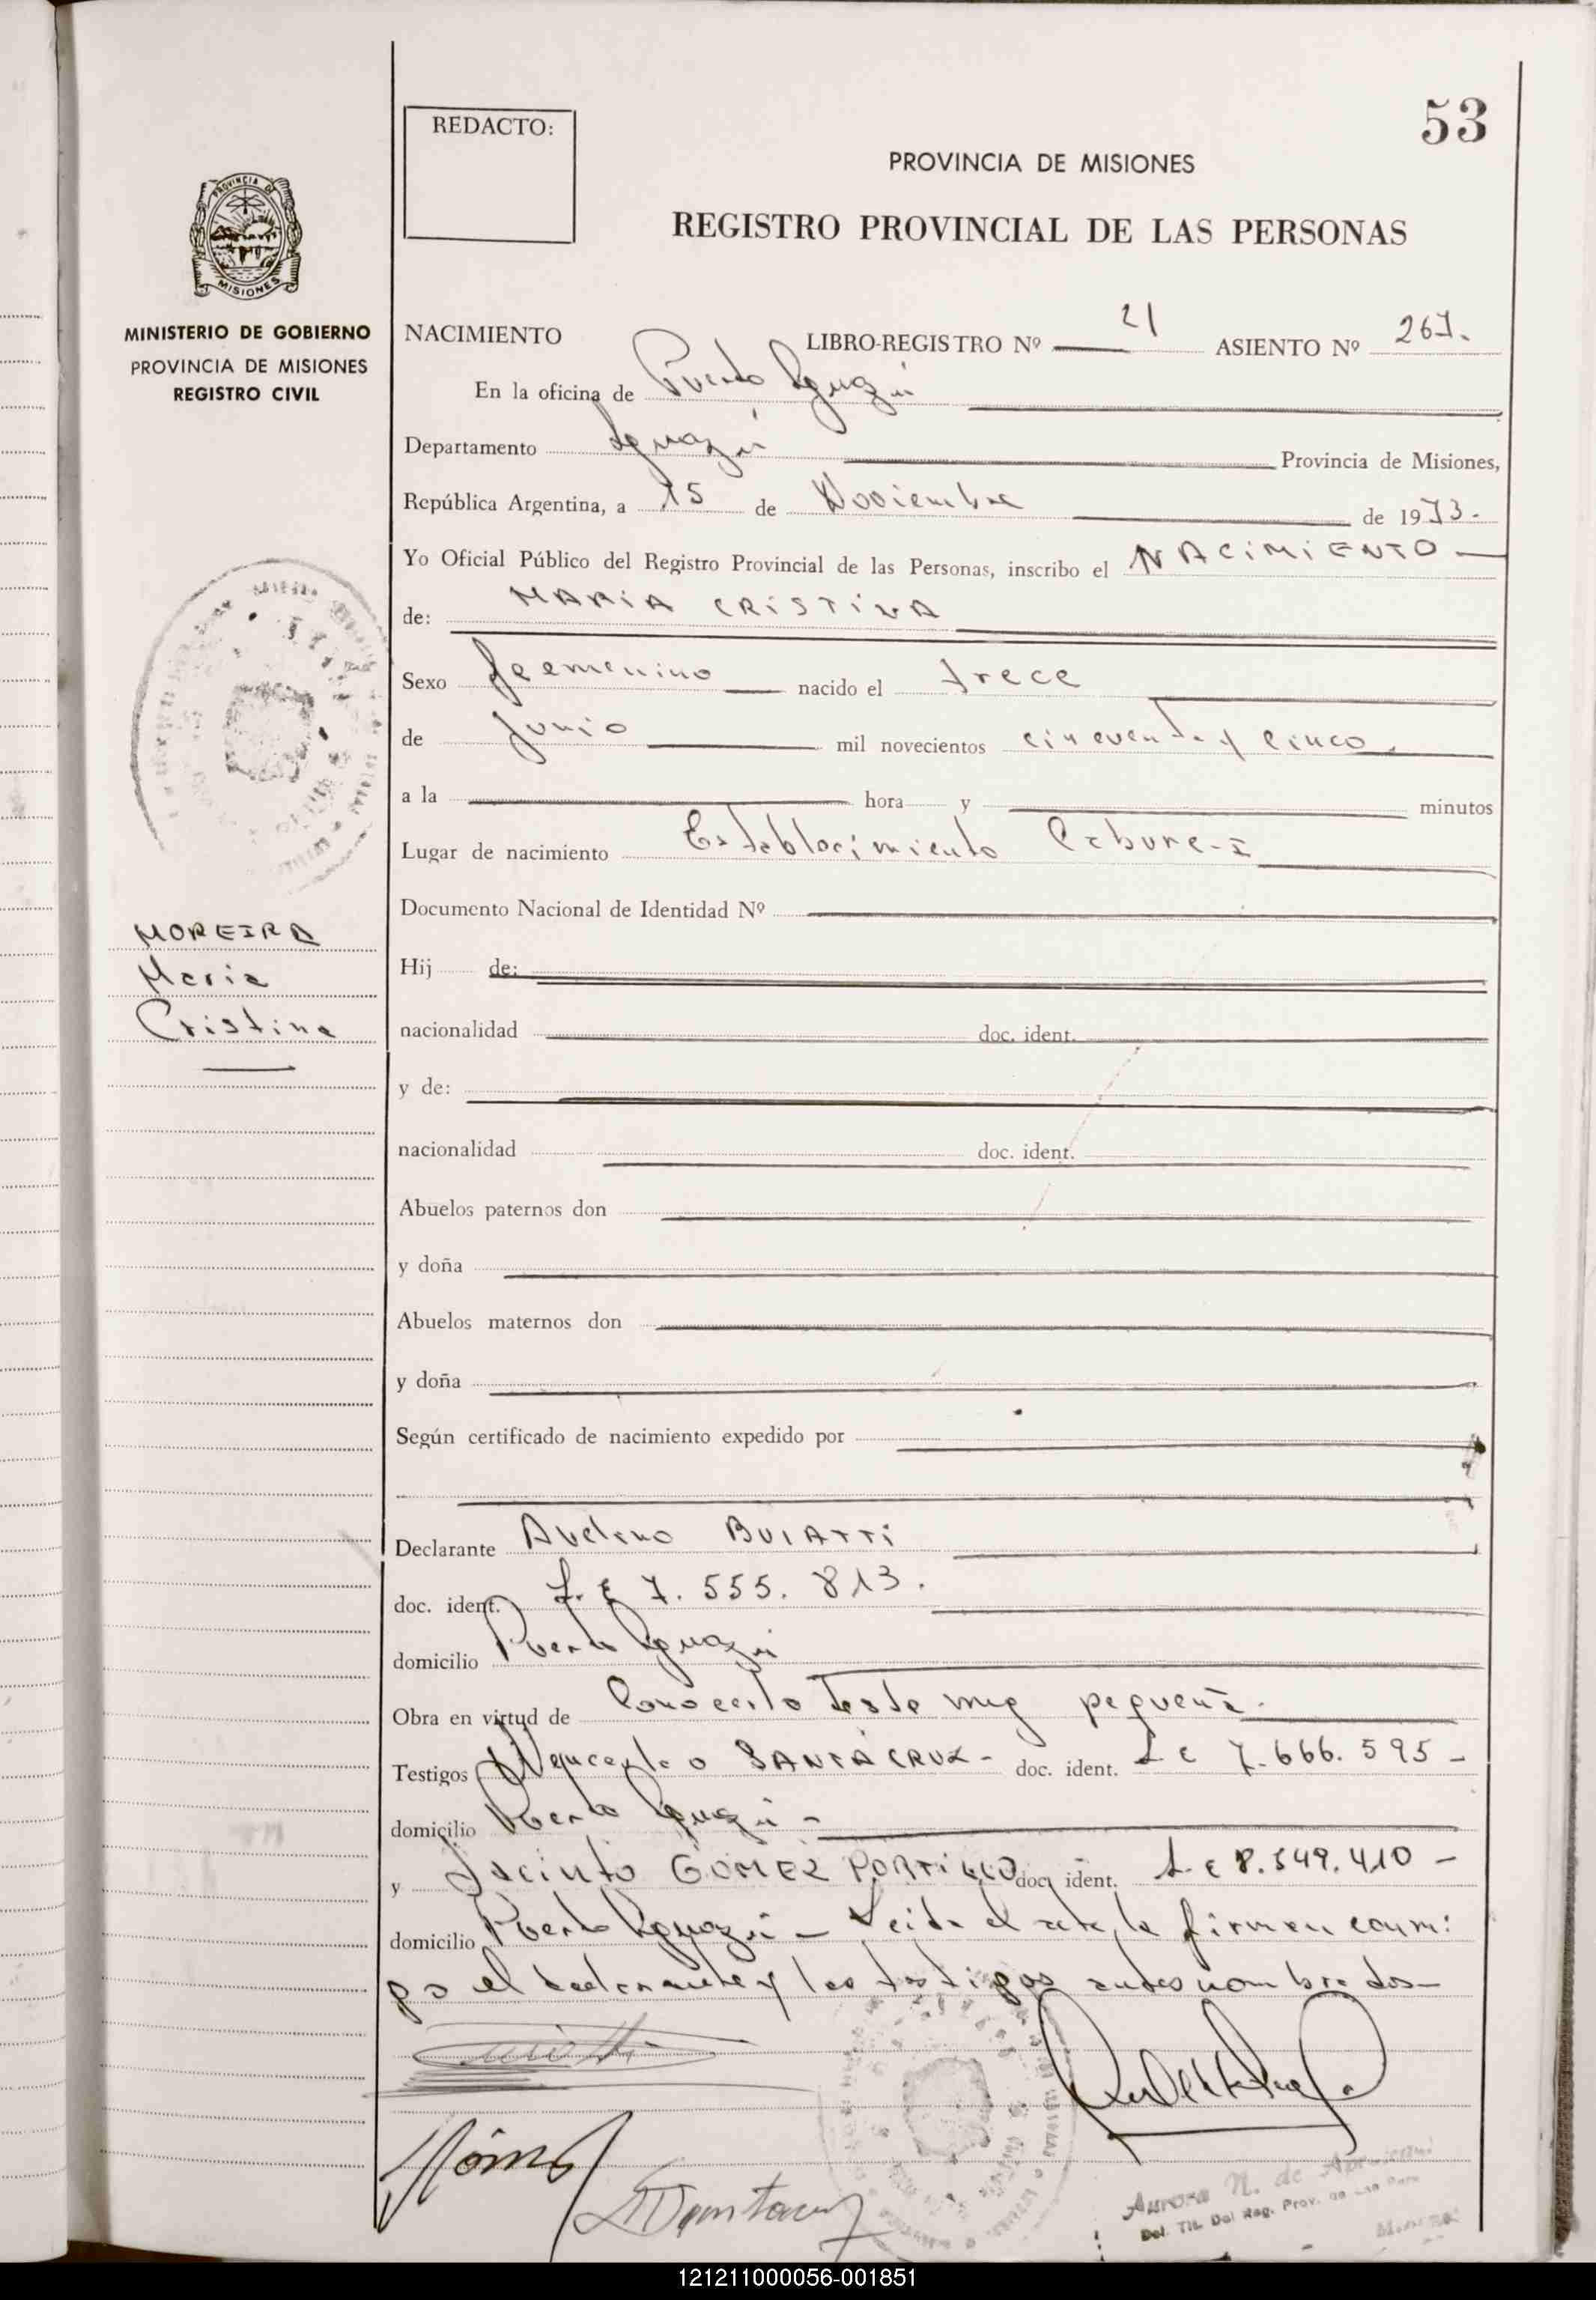 53
REDACTO:
PROVINCIA DE MISIONES
REGISTRO PROVINCIAL DE LAS PERSONAS
PROVINCIA DE
MISIONES
MINISTERIO DE GOBIERNO
PROVINCIA DE MISIONES
REGISTRO CIVIL
NACIMIENTO LIBRO-REGISTRO Nº 21 ASIENTO Nº 267.
En la oficina de Puerto Iguazú
Departamento Iguazú Provincia de Misiones,
República Argentina, a 15 de Noviembre de 1973.
Yo Oficial Público del Registro Provincial de las Personas, inscribo el NACIMIENTO
de: MARIA CRISTINA
Sexo feemenino nacido el trece
de junio mil novecientos cincuenta y cinco.
a la hora y minutos
Lugar de nacimiento Establecimiento
Documento Nacional de Identidad Nº
MOREIRA
Maria
Cristina
Hij de:
nacionalidad doc. ident.
y de:
nacionalidad doc. ident.
Abuelos paternos don
y doña
Abuelos maternos don
y doña
Según certificado de nacimiento expedido por
Declarante Avelino BUIATTI
doc. ident. L. E 7. 555. 813.
domicilio Puerto Iguazú
Obra en virtud de Conocerlo desde muy pequeña.
Testigos SANTACRUZ - doc. ident. L E 7.666.595 -
domicilio Puerto Iguazú -
y Jacinto GOMEZ PORTILLO doc. ident. L. E 8.549.410 -
domicilio Puerto Iguazú - Leida el acta, la firman conmi
go el declarante y los testigos antes nombrados -
Aurora N. de
Del. Tit. Del Reg. Prov. de Las Pers
121211000056-001851